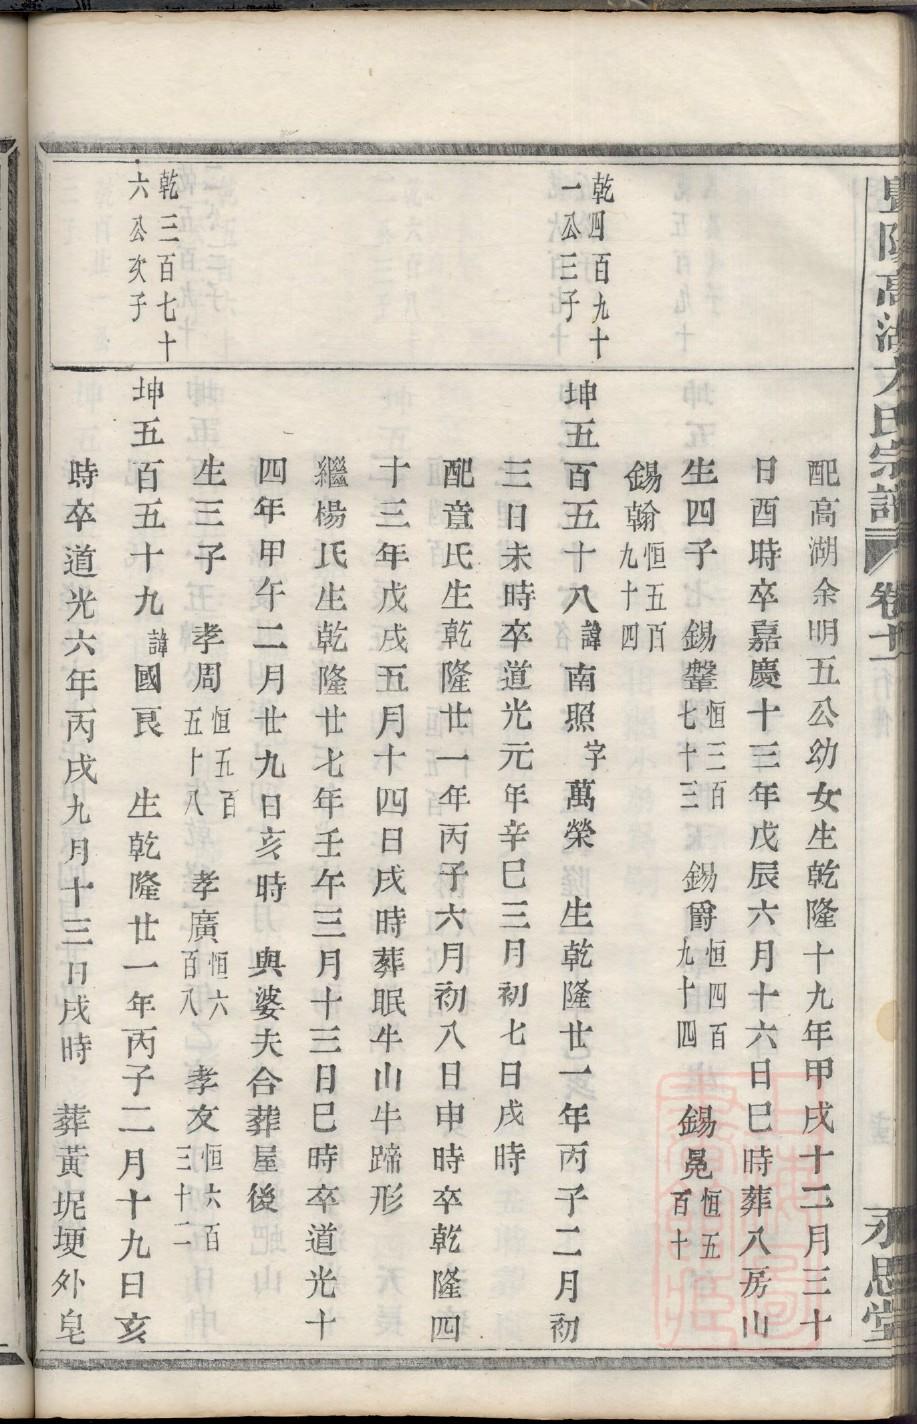 豐陽高湖方氏宗譜 卷十 永思堂
配高湖余明五公幼女生乾隆十九年甲戌十二月三十
日酉時卒嘉慶十三年戊辰六月十六日巳時葬八房山
生四子 錫鼙恒三百七十三 錫爵恒四百九十四 錫冕恒五百十
錫翰恒五百九十四
乾四百九十一公三子
坤五百五十八諱南照字萬榮 生乾隆廿一年丙子二月初
三日未時卒道光元年辛巳三月初七日戌時
配章氏生乾隆廿一年丙子六月初八日申時卒乾隆四
十三年戊戌五月十四日戌時葬眠牛山牛蹄形
繼楊氏生乾隆廿七年壬午三月十三日巳時卒道光十
四年甲午二月廿九日亥時 與婆夫合葬屋後
生三子 孝周恒五百五十八 孝廣恒六百八 孝友恒六百三十二
乾三百七十六公次子
坤五百五十九諱國良 生乾隆廿一年丙子二月十九日亥
時卒道光六年丙戌九月十三日戌時 葬黃坭埂外皂